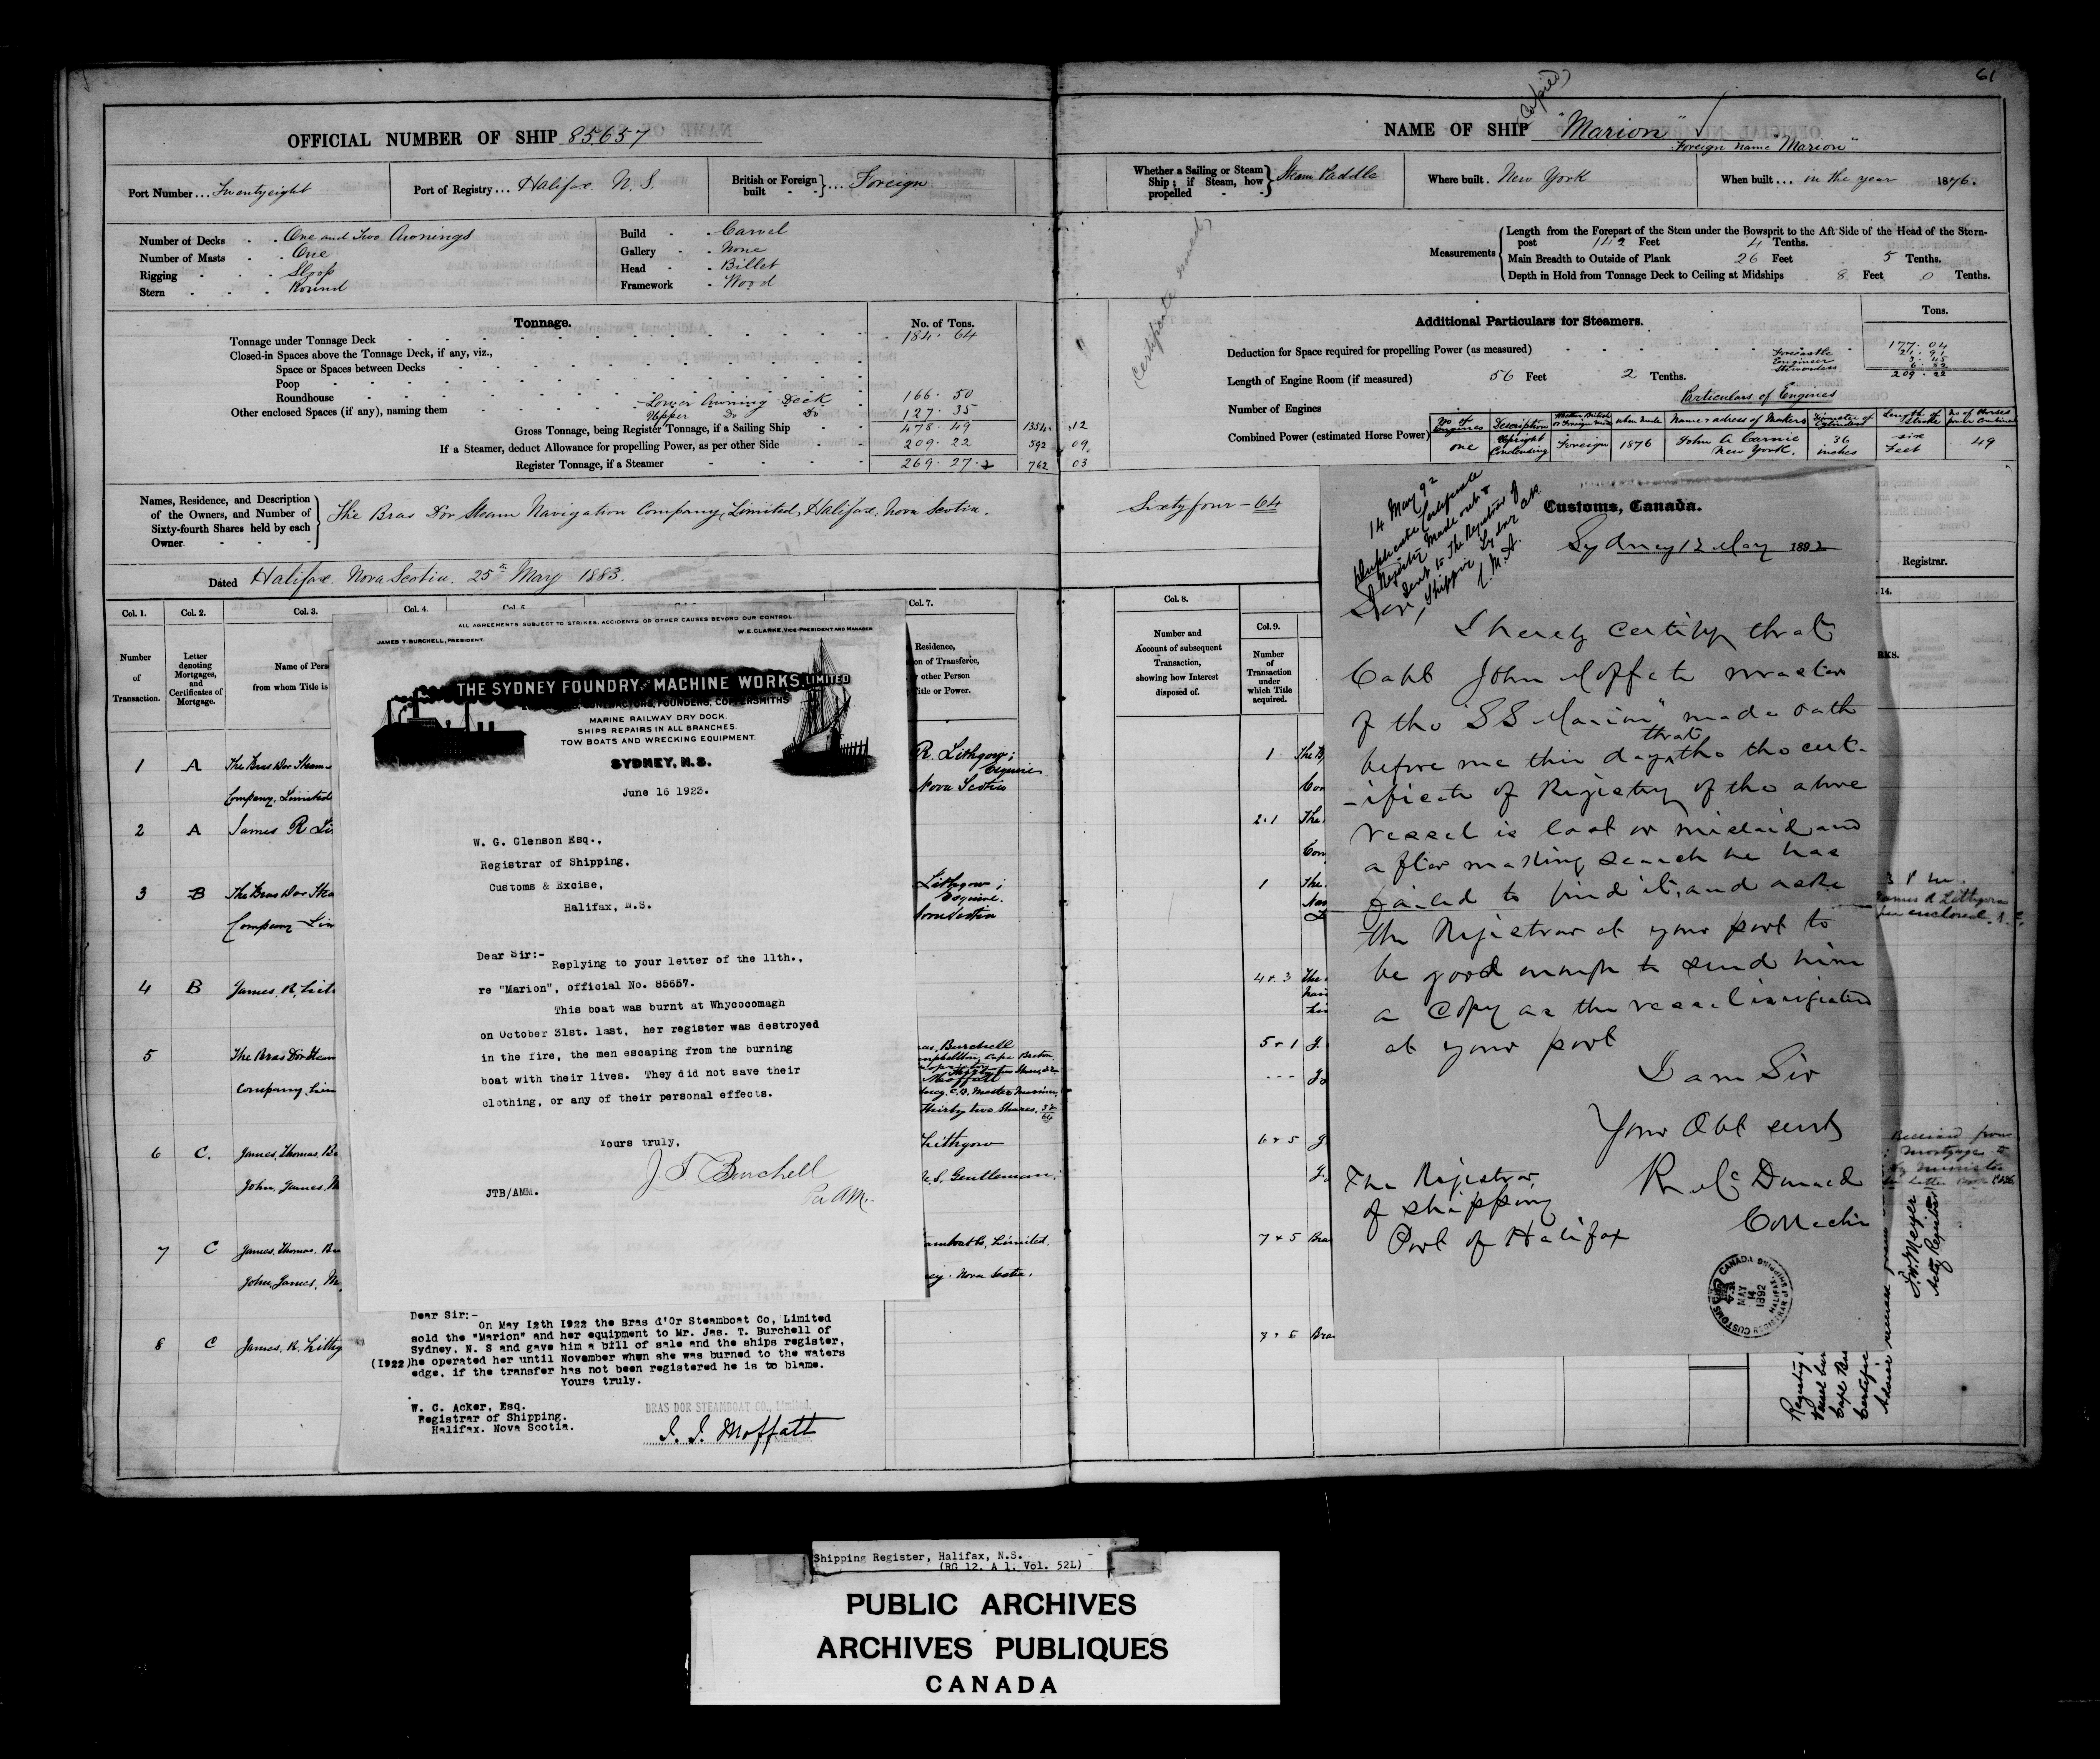 61
OFFICIAL NUMBER OF SHIP 85657
Port Number ... Twentyeight
Port of Registry ... Halifax N. S.
British or Foreign built } ... Foreign
Number of Decks - One and Two Awnings
Number of Masts - One
Rigging - Sloop
Stern - Round
Build - Carvel
Gallery - None
Head - Billet
Framework - Wood
Tonnage.
No. of Tons.
Tonnage under Tonnage Deck 184. 64
Closed-in Spaces above the Tonnage Deck, if any, viz.,
Space or Spaces between Decks
Poop
Roundhouse
Other enclosed Spaces (if any), naming them
Lower Awning Deck 166. 50
Upper Do Do 127. 35
Gross Tonnage, being Register Tonnage, if a Sailing Ship 478. 49 1354. 12
If a Steamer, deduct Allowance for propelling Power, as per other Side 209. 22 592 09
Register Tonnage, if a Steamer 269. 27 762 03
Names, Residence, and Description
of the Owners, and Number of
Sixty-fourth Shares held by each
Owner
The Bras Dor Steam Navigation Company, Limited, Halifax, Nova Scotia.
Sixty four - 64
Dated Halifax Nova Scotia. 25th May 1883.
Col. 1.
Number
of
Transaction.
Col. 2.
Letter
denoting
Mortgages,
and
Certificates of
Mortgage.
Col. 3.
Name of Pers
from whom Title is
Col. 4.
Col. 7.
Residence,
on of Transferee,
other Person
Title or Power.
1 A The Bras Dor Steam
Company, Limited
R. Lithgow;
Esquire
Nova Scotia
2 A James R Li
3 B The Bras Dor Stea
Company Lim
Lithgow;
Esquire.
4 B James, R, Lith
5 The Bras Dor Steam
Company, Lim
Burchell
Moffatt
Thirty two Shares. 32/64
6 C. James, Thomas, Bu
John, James, M
Lithgow
N.S. Gentleman;
7 C James, Thomas, Bu
John, James, M
amboat Co, Limited.
ney. Nova Scotia.
8 C James, R, Lithg
ALL AGREEMENTS SUBJECT TO STRIKES, ACCIDENTS OR OTHER CAUSES BEYOND OUR CONTROL.
JAMES T. BURCHELL, PRESIDENT.
W. E. CLARKE, VICE-PRESIDENT AND MANAGER
THE SYDNEY FOUNDRY AND MACHINE WORKS, LIMITED
CONTRACTORS, FOUNDERS, COPPERSMITHS
MARINE RAILWAY DRY DOCK.
SHIPS REPAIRS IN ALL BRANCHES.
TOW BOATS AND WRECKING EQUIPMENT.
SYDNEY, N.S.
June 16 1923.
W. G. Glenson Esq.,
Registrar of Shipping,
Customs & Excise,
Halifax, N.S.
Dear Sir:-
Replying to your letter of the 11th.,
re "Marion", official No. 85657.
This boat was burnt at Whycocomagh
on October 31st. last, her register was destroyed
in the fire, the men escaping from the burning
boat with their lives. They did not save their
clothing, or any of their personal effects.
Yours truly,
J T Burchell
Per AM.
JTB/AMM.
Dear Sir:-
On May 12th 1922 the Bras d'Or Steamboat Co, Limited
sold the "Marion" and her equipment to Mr. Jas. T. Burchell of
Sydney, N. S and gave him a bill of sale and the ships register,
(1922)he operated her until November when she was burned to the waters
edge. if the transfer has not been registered he is to blame.
Yours truly.
W. C. Acker, Esq.
Registrar of Shipping.
Halifax. Nova Scotia.
BRAS DOR STEAMBOAT CO., Limited.
J. J. Moffatt
Manager.
(Copied)
NAME OF SHIP "Marion"
Foreign name "Marion"
Whether a Sailing or Steam
Ship; if Steam, how
propelled
Steam Paddle
Where built. New York
When built ... in the year 1876.
(Certificate issued)
Measurements
Length from the Forepart of the Stem under the Bowsprit to the Aft Side of the Head of the Stern-
post 142 Feet 4 Tenths.
Main Breadth to Outside of Plank 26 Feet 5 Tenths.
Depth in Hold from Tonnage Deck to Ceiling at Midships 8 Feet 0 Tenths.
Additional Particulars for Steamers.
Tons.
Deduction for Space required for propelling Power (as measured) 177. 04
Forecastle 21. 91
Engineer 3. 45
Stewardess 6. 82
209. 22
Length of Engine Room (if measured) 56 Feet 2 Tenths.
Number of Engines
Combined Power (estimated Horse Power)
Particulars of Engines
No of Engines
Description
Whether British or Foreign made
When made
Name & adress of Makers
Diameter of Cylinders
Length of Stroke
No of Horses power Combined
one
Upright Condensing
Foreign
1876
John A. Carnie New York.
36 inches
six Feet
49
Registrar.
Col. 8.
Number and
Account of subsequent
Transaction,
showing how Interest
disposed of.
Col. 9.
Number
of
Transaction
under
which Title
acquired.
14.
RKS.
1
2.1
1
4 & 3
5 & 1
6 & 5
7 & 5
7 & 5
Customs, Canada.
Sydney 12 May 1892
14 May 92
Duplicate Certificate
Registry made out &
sent to the Registrar of
Shipping Sydney C.B.
Sir,
I hereby certify that
Capt John Moffatt master
of the "SS Marion" made oath
before me this day that the cert-
-ificate of Registry of the above
vessel is lost or mislaid and
after making search he has
failed to find it, and asks
the Registrar at your port to
be good enough to send him
a copy as the vessel is registered
at your port
I am Sir
Your Obt servt
R McDonald
Collector
The Registrar
of shipping
Port of Halifax
CUSTOMS CANADA
MAY
14
1892
REGISTRAR OF SHIPPING
HALIFAX
James R Lithgow
Received from
mortgage
A.W. Meyer
Actg Registrar
Shipping Register, Halifax, N.S.
(RG 12, A 1, Vol. 52L)
PUBLIC ARCHIVES
ARCHIVES PUBLIQUES
CANADA